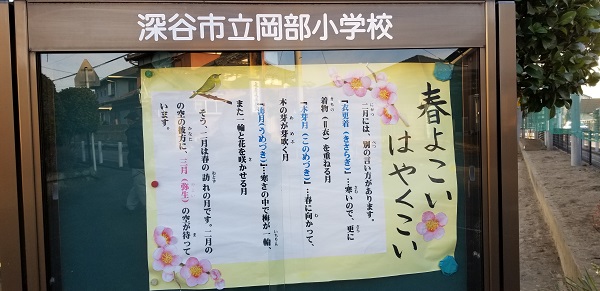 深谷市立岡部小学校
春よこい
はやくこい
二月には、別の言い方があります。
『衣更着(きさらぎ)』…寒いので、更に
着物(=衣)を重ねる月
『木芽月(このめづき)』…春に向かって、
木の芽が芽吹く月
『梅月(うめづき)』…寒さの中で梅が、一輪、
また一輪と花を咲かせる月
そう、二月は春の訪れの月です。二月の
の空の彼方に、三月(弥生)の空が待って
います。